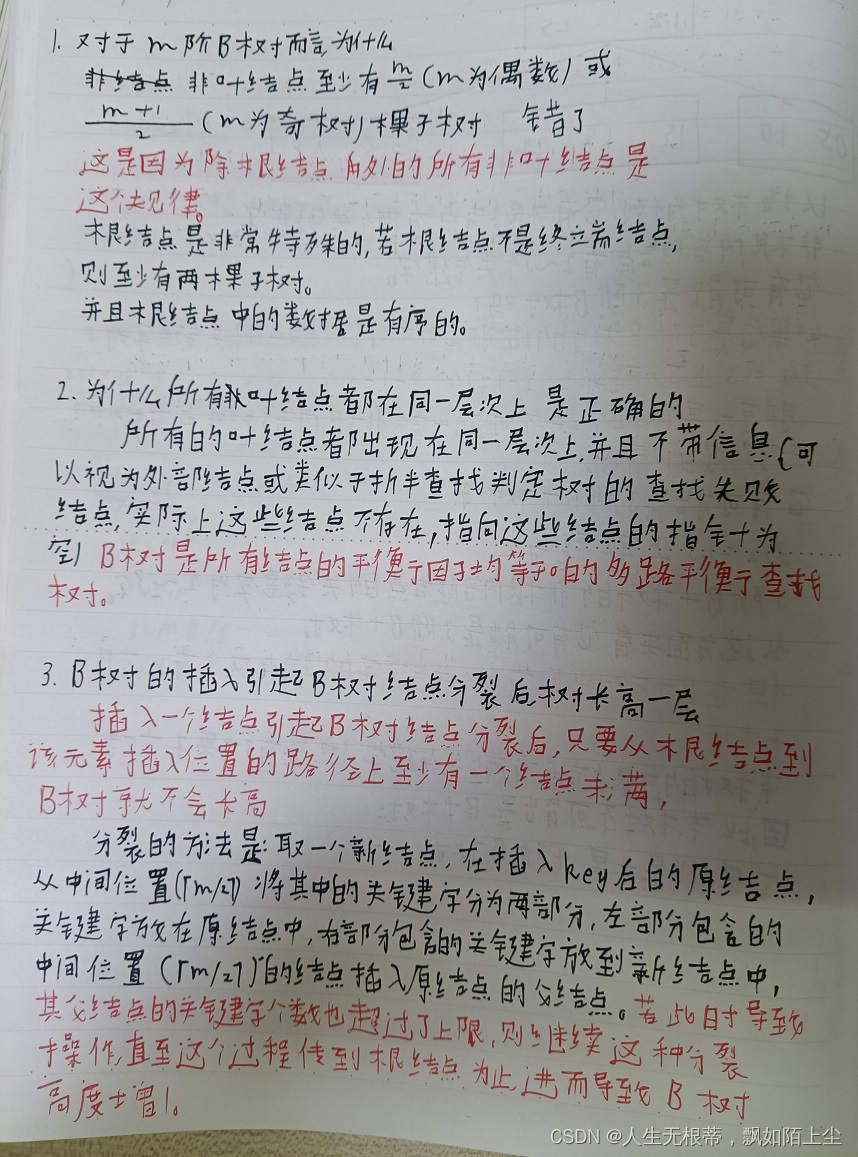 1. 对于m阶B树而言,为什么
非结点 非叶结点至少有m/2(m为偶数)或
m+1/2(m为奇树)棵子树 错了
这是因为除根结点以外的所有非叶结点是
这个规律。
根结点是非常特殊的,若根结点不是终端结点,
则至少有两棵子树。
并且根结点中的数据是有序的。
2. 为什么所有叶结点都在同一层次上 是正确的
所有的叶结点都出现在同一层次上,并且不带信息(可
以视为外部结点或类似于折半查找判定树的查找失败
结点,实际上这些结点不存在,指向这些结点的指针为
空) B树是所有结点的平衡因子均等于0的多路平衡查找
树。
3. B树的插入引起B树结点分裂后,树长高一层
插入一个结点引起B树结点分裂后,只要从根结点到
该元素插入位置的路径上至少有一个结点未满,
B树就不会长高
分裂的方法是:取一个新结点,在插入key后的原结点,
从中间位置(⌈m/2⌉)将其中的关键字分为两部分,左部分包含的
关键字放在原结点中,右部分包含的关键字放到新结点中,
中间位置(⌈m/2⌉)的结点插入原结点的父结点。若此时导致
其父结点的关键字个数也超过了上限,则继续这种分裂
操作,直至这个过程传到根结点为止,进而导致B树
高度增1。
CSDN @人生无根蒂,飘如陌上尘